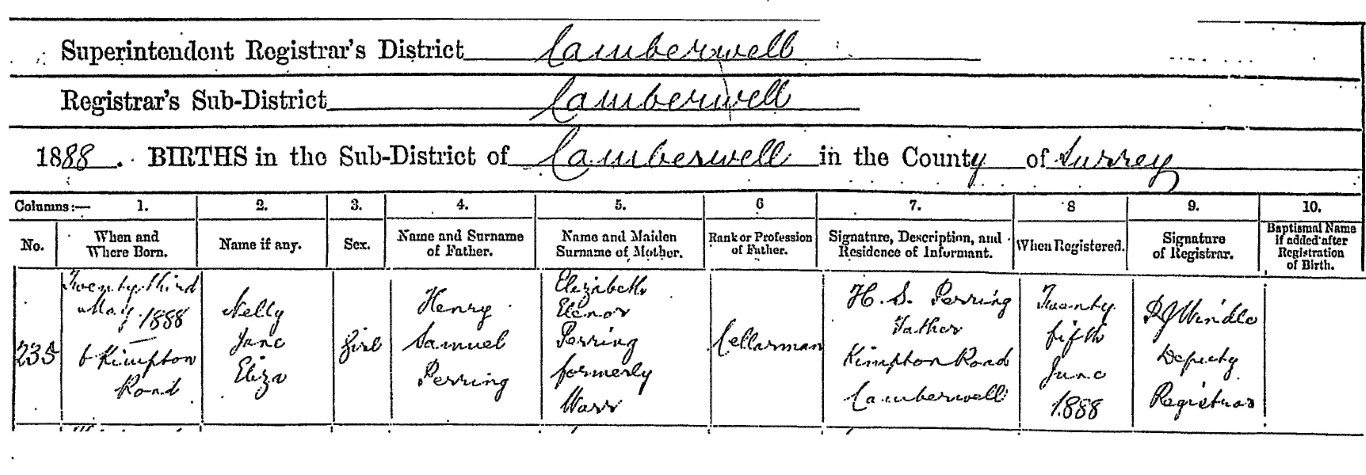 Superintendent Registrar's District Camberwell
Registrar's Sub-District Camberwell
1888. BIRTHS in the Sub-District of Camberwell in the County of Surrey
Columns:— 1. 2. 3. 4. 5. 6 7. 8 9. 10.
No. When and Where Born. Name if any. Sex. Name and Surname of Father. Name and Maiden Surname of Mother. Rank or Profession of Father. Signature, Description, and Residence of Informant. When Registered. Signature of Registrar. Baptismal Name if added after Registration of Birth.
235
Twenty third
May 1888
6 Kimpton
Road
Nelly
Jane
Eliza
Girl
Henry
Samuel
Perring
Elizabeth
Elenor
Perring
formerly
Warr
Cellarman
H. S. Perring
Father
Kimpton Road
Camberwell
Twenty
fifth
June
1888
Windle
Deputy
Registrar